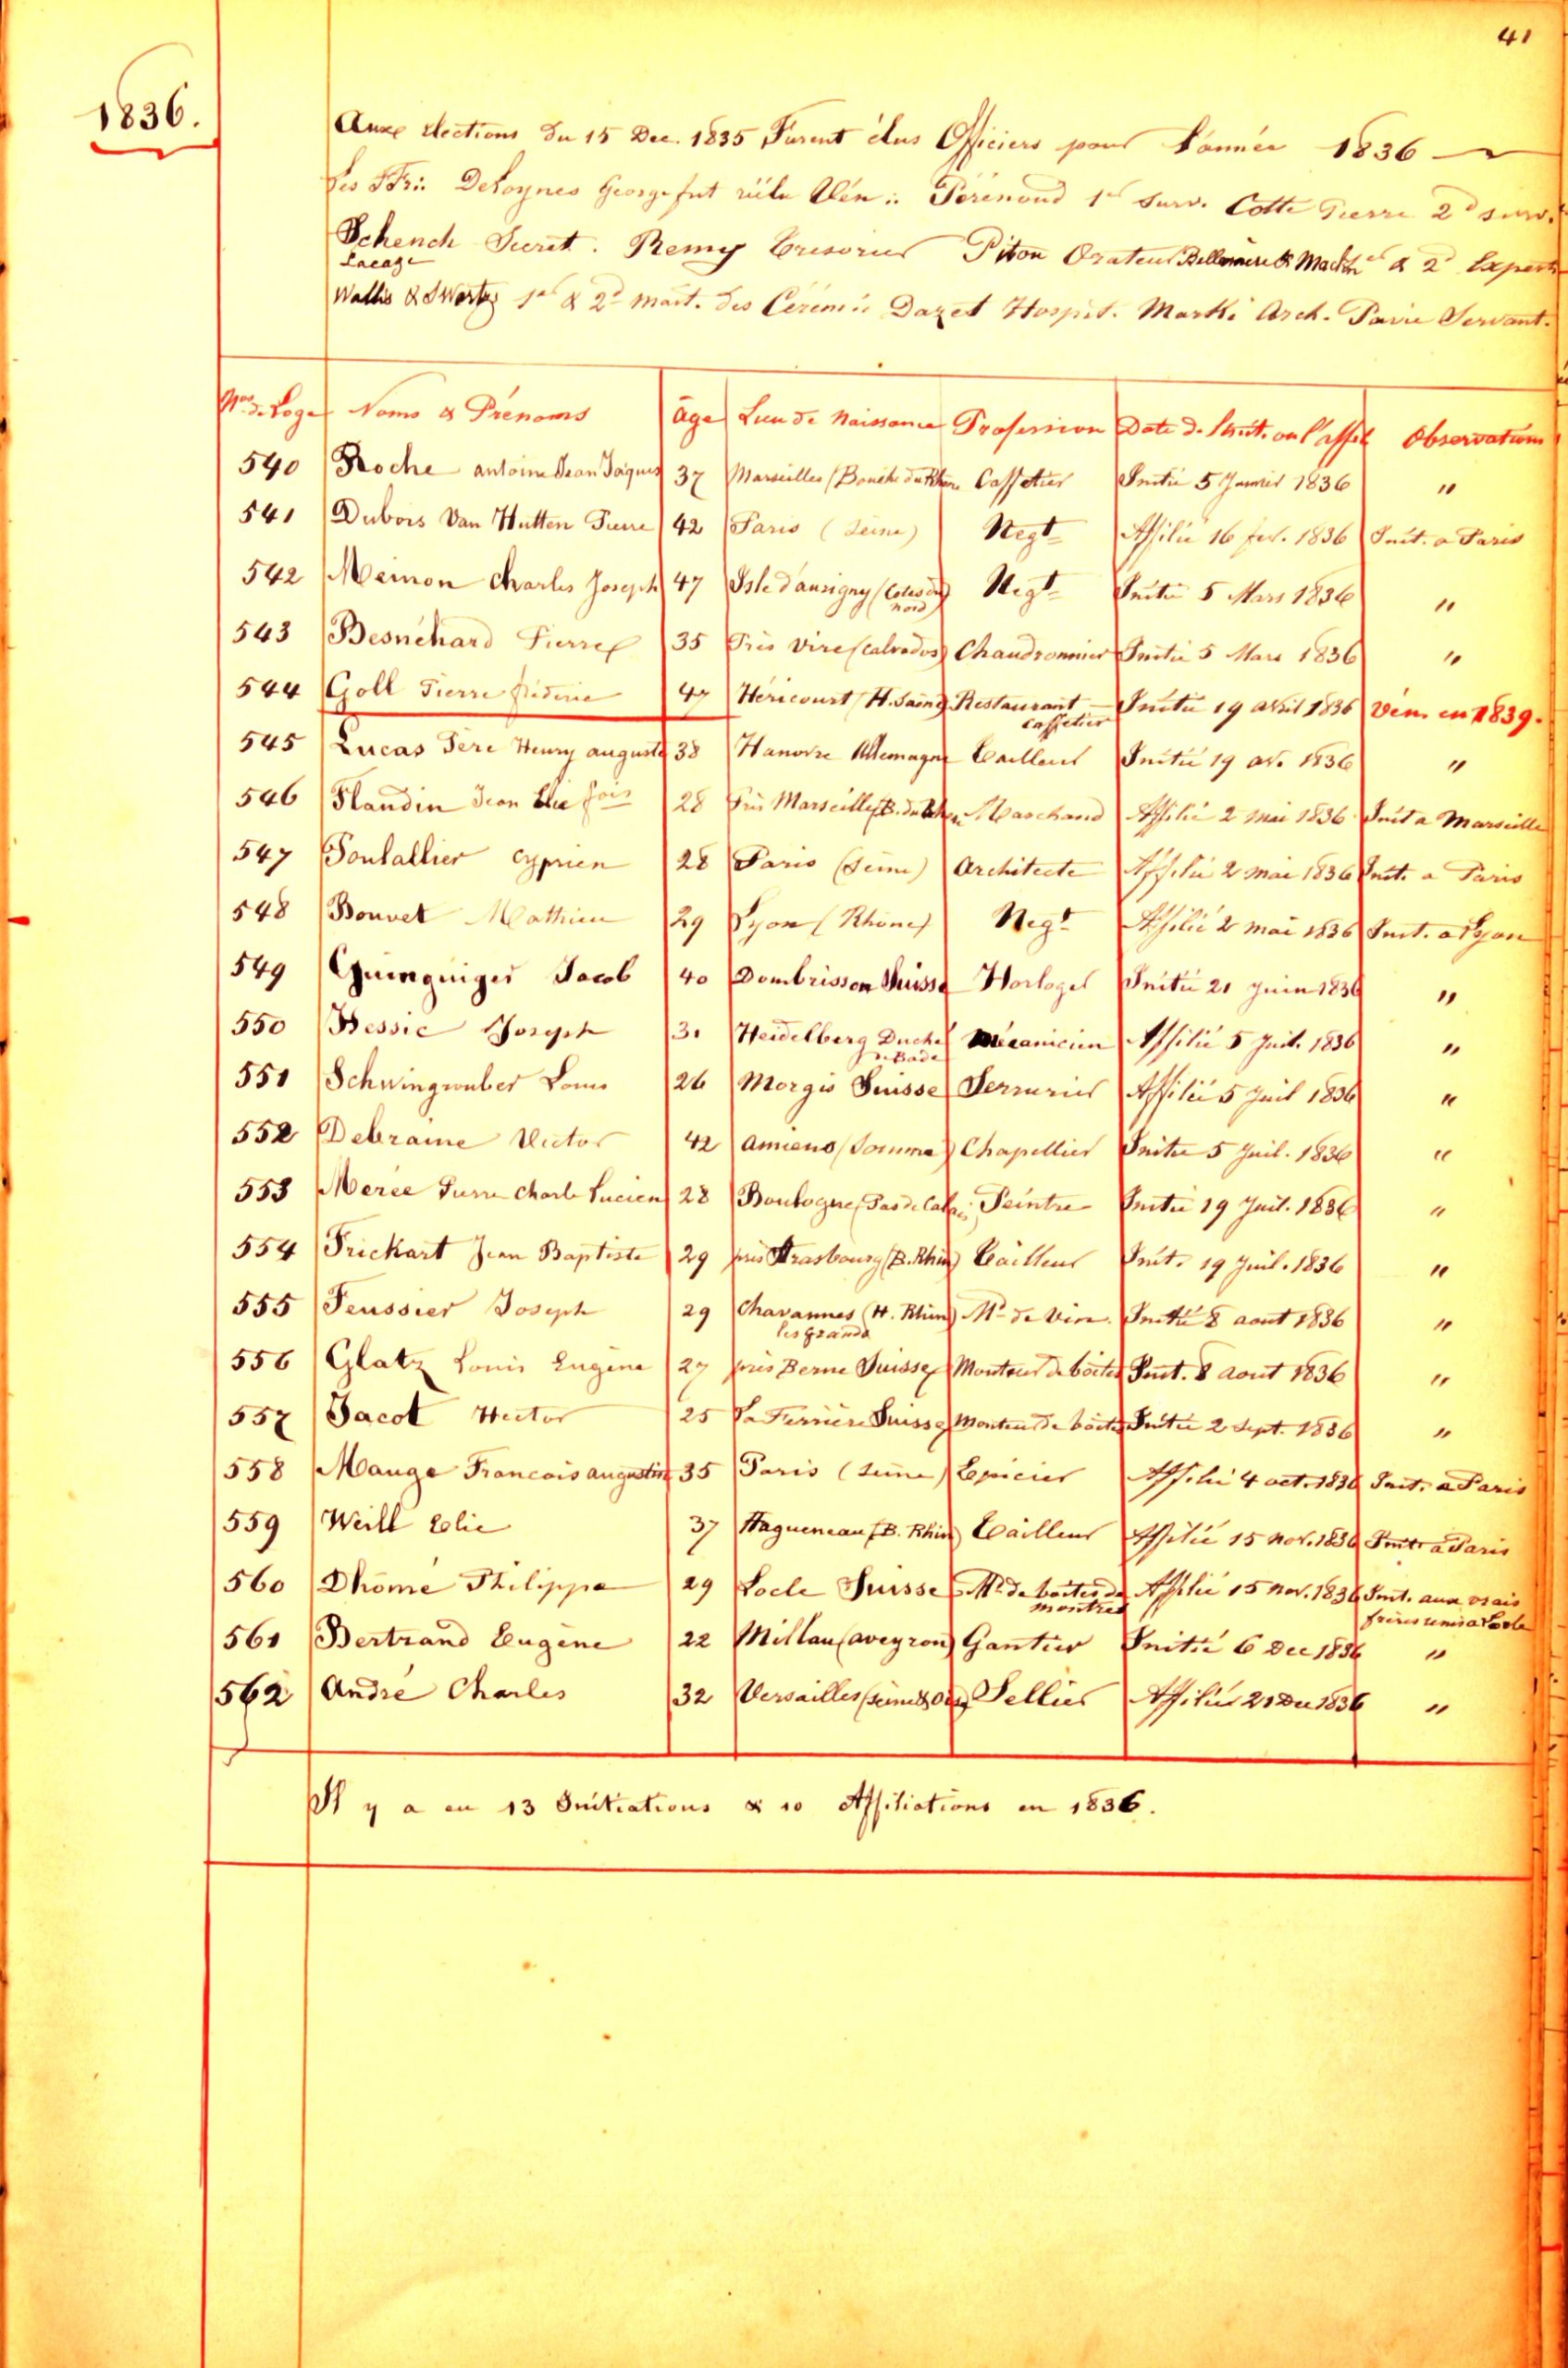 41
1836.
Aux Elections du 15 Dec. 1835 Furent élus Officiers pour l'année 1836
Les FF∴ DeLoynes George fut réélu Vén∴ Pérénond 1er Surv. Cotte Pierre 2d surv.
Schench Secret. Remy Trésorier Piton Orateur Bellemere & Mackh 1er & 2d Expert
Lacage
Wallis & SWartz 1er & 2d Mait. des Cérém∴ Dazet Hospit. Marki Arch. Pavie Servant.
Nos de Loge Noms & Prénoms âge Lieu de Naissance Profession Date de l'Init. ou l'affil Observations
540 Roche antoine Jean Jaques 37 Marseilles (Bouche du Rhone Caffetier Initié 5 Janvier 1836 "
541 Dubois Van Hutten Pierre 42 Paris (Seine) Negt Affilié 16 fev. 1836 Init. a Paris
542 Meinon Charles Joseph 47 Isle d'aurigny (Cotes du nord) Negt Initié 5 Mars 1836 "
543 Besnéhard Pierre 35 Près Vire (calvados) Chaudronnier Initié 5 Mars 1836 "
544 Goll Pierre fréderic 47 Héricourt (H. Saone) Restaurant Caffetier Initié 19 avril 1836 Vén. en 1839.
545 Lucas Père Henry auguste 38 Hanovre Allemagne Tailleur Initié 19 av. 1836 "
546 Flandin Jean Elie fois 28 Près Marseilles (B. du Rhone Marchand Affilié 2 mai 1836 Init a Marseille
547 Pontallier Cyprien 28 Paris (Seine) Architecte Affilié 2 mai 1836 Init. a Paris
548 Bouvet Mathieu 29 Lyon (Rhone) Negt Affilié 2 mai 1836 Init. a Lyon
549 Guinguiger Jacob 40 Dombrisson Suisse Horloger Initié 21 juin 1836 "
550 Bessie Joseph 31 Heidelberg Duché de Bade Mécanicien Affilié 5 Juil. 1836 "
551 Schwingrouber Louis 26 Morges Suisse Serrurier Affilié 5 Juil 1836 "
552 Debraine Victor 42 amiens (Somme) Chapellier Initié 5 Juil. 1836 "
553 Merée Pierre Charle Lucien 28 Boulogne (Pas de Calais Peintre Initié 19 Juil. 1836 "
554 Frickart Jean Baptiste 29 près Strasbourg (B. Rhin) Tailleur Init. 19 Juil. 1836 "
555 Feussier Joseph 29 Chavannes les grands (H. Rhin) Md de Vin. Initié 8 aout 1836 "
556 Glatz Louis Eugène 27 près Berne Suisse Monteur de boites Init. 8 Aout 1836 "
557 Jacot Hector 25 La Ferrière Suisse Monteur de boites Initié 2 Sept. 1836 "
558 Mauge Francois augustin 35 Paris (Seine) Epicier Affilié 4 oct. 1836 Init. a Paris
559 Weill Elie 37 Hagueneau (B. Rhin) Tailleur Affilié 15 nov. 1836 Init a Paris
560 Dhôme Philippe 29 Locle Suisse Mr de boites de montres Affilié 15 nov. 1836 Init. aux vrais freres unis a Locle
561 Bertrand Eugène 22 Millau (aveyron) Gantier Initié 6 Dec 1836 "
562 André Charles 32 Versailles (Seine & Oise) Sellier Affilié 21 Dec 1836 "
Il y a eu 13 Initiations & 10 Affiliations en 1836.